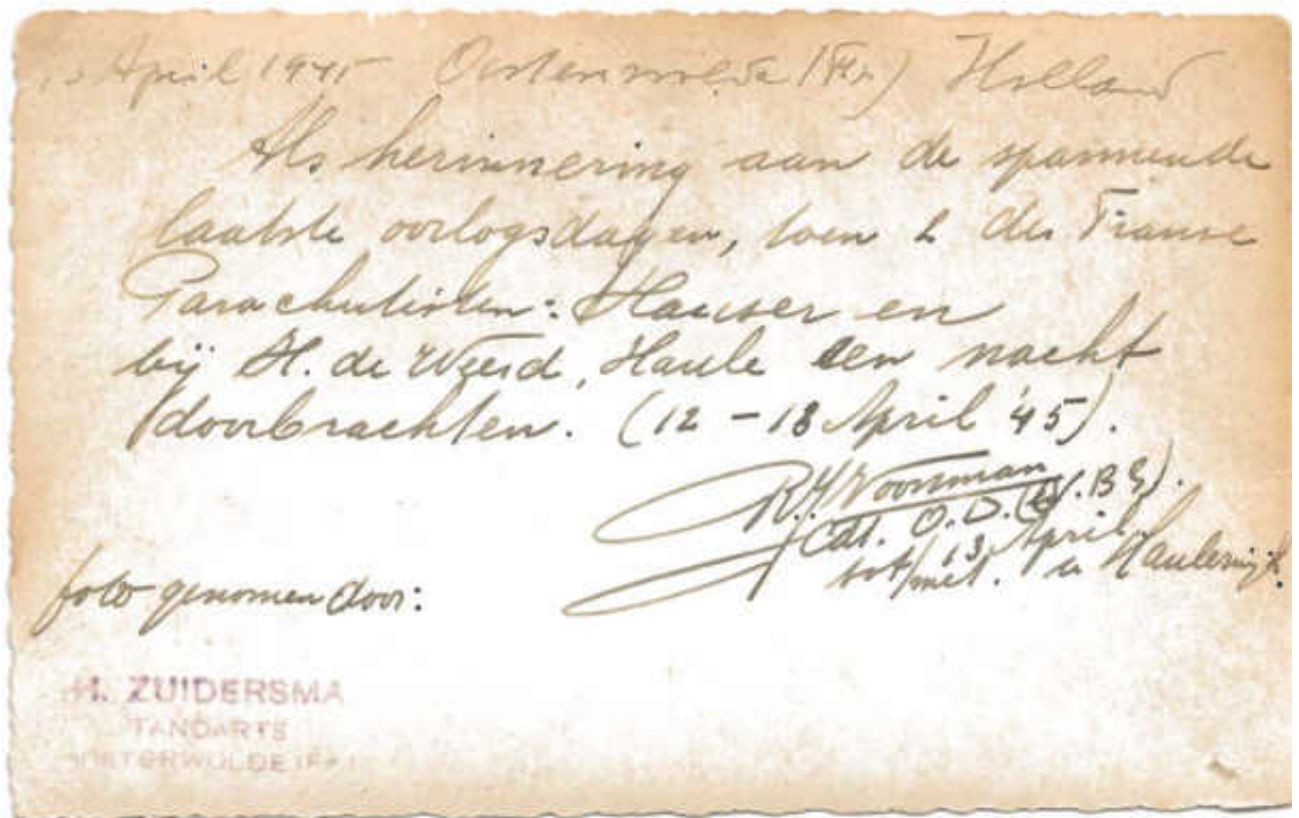 April 1945 Oosterwolde (Fr.) Holland
Als herinnering aan de spannende
laatste oorlogsdagen, toen 2 der Franse
Parachutisten: Hauser en
bij H. de Weerd, Haule een nacht
doorbrachten. (12 – 13 April '45).
R.H. Voorman
Cdt. O.D. (N.B.S).
tot/met. 13 April in Haulerwijk.
foto genomen door:
H. ZUIDERSMA
TANDARTS
OOSTERWOLDE (Fr.)